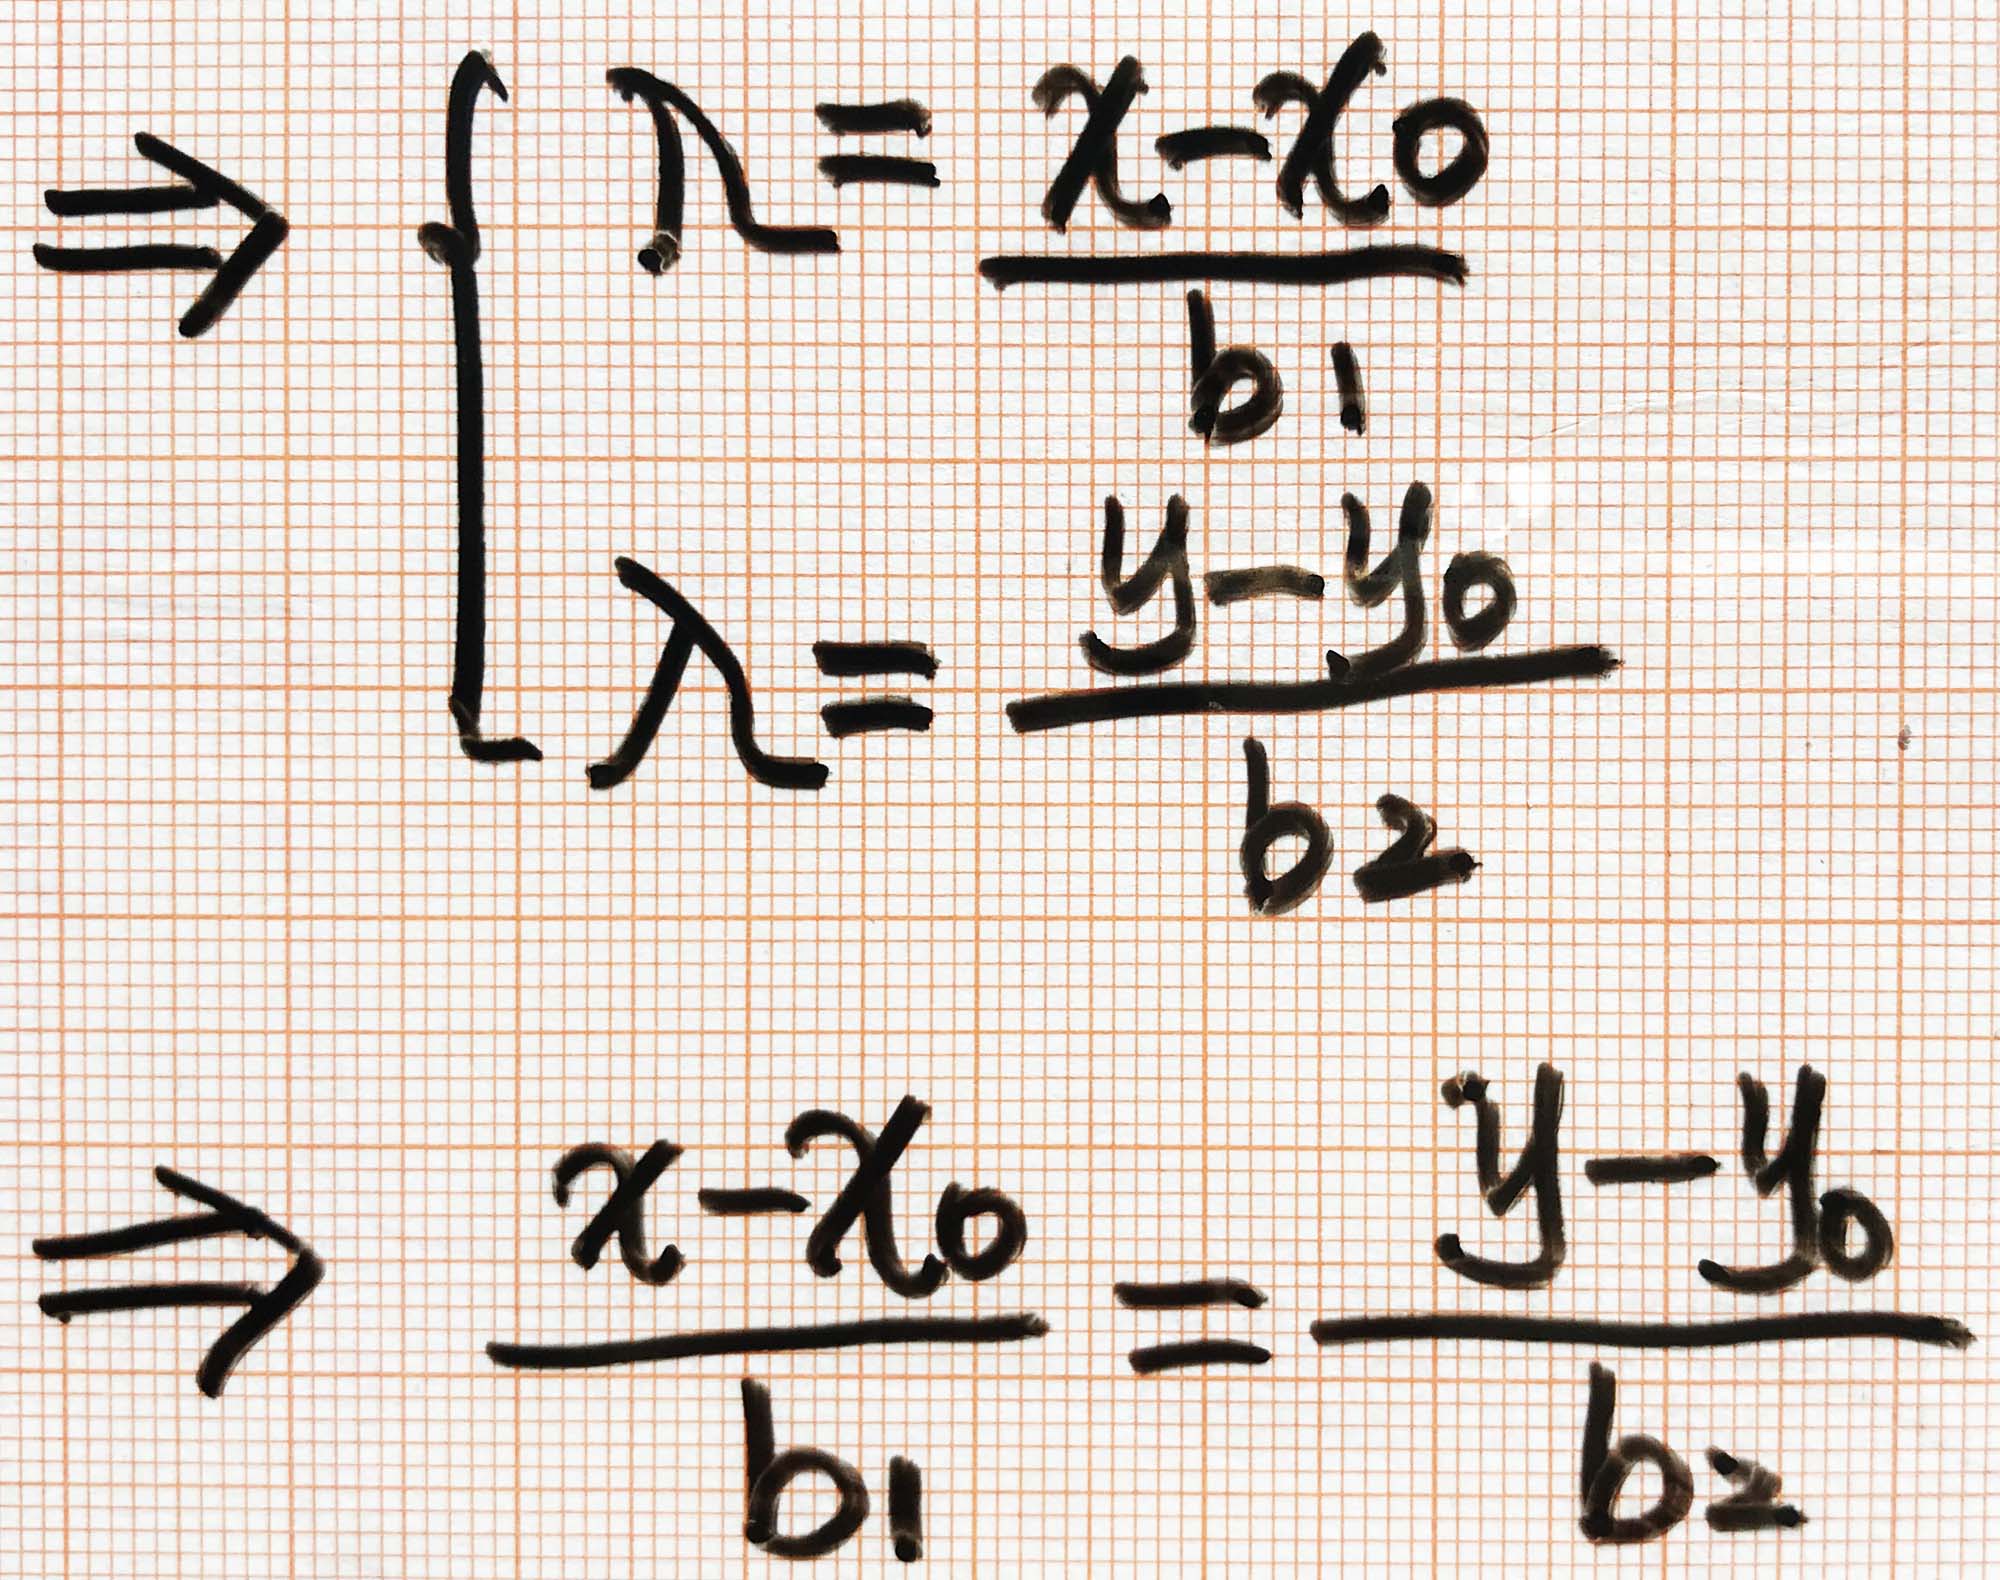 ⇒ { λ = (x - x₀) / b₁
λ = (y - y₀) / b₂
⇒ (x - x₀) / b₁ = (y - y₀) / b₂